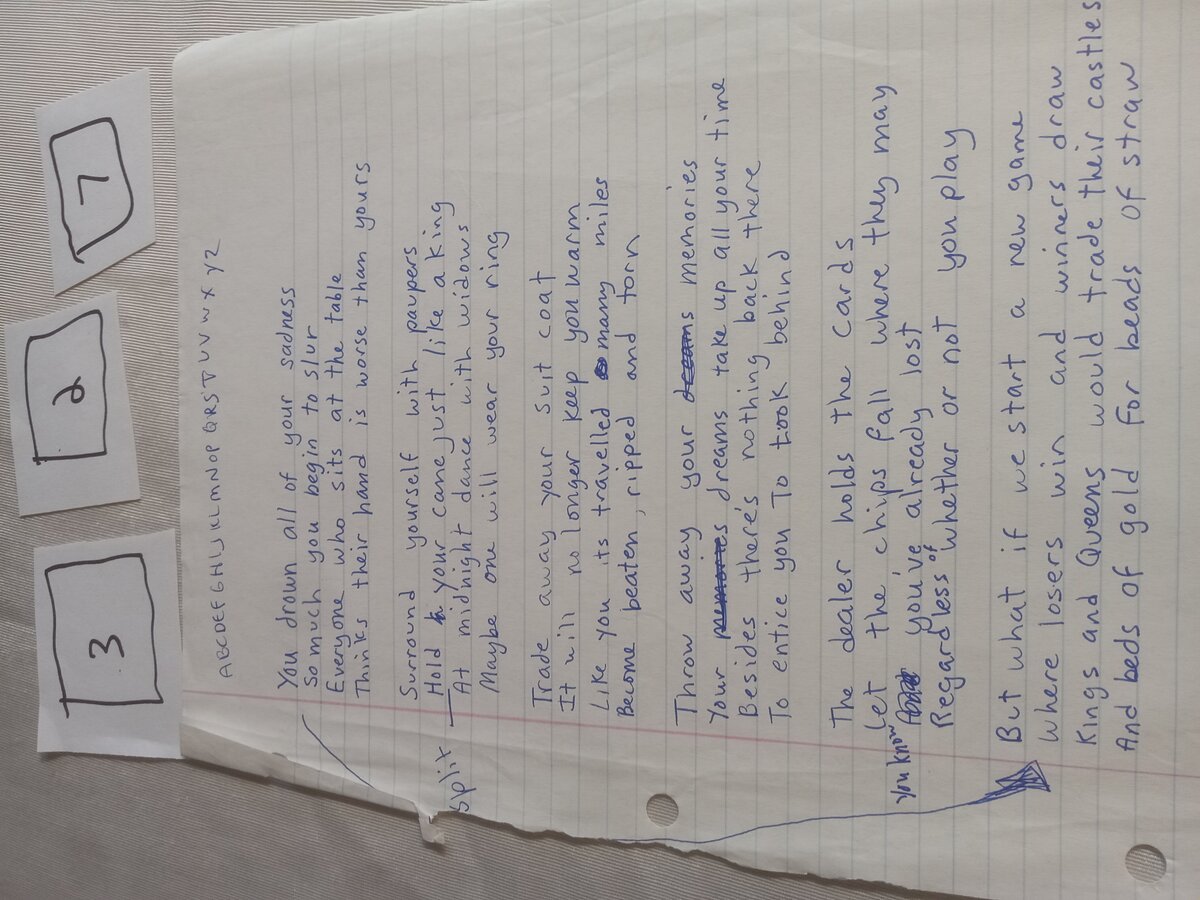 3 2 1
ABCDEFGHIJKLMNOP QRSTUVWXYZ
You drown all of your sadness
So much you begin to slur
Everyone who sits at the table
Thinks their hand is worse than yours
Surround yourself with paupers
Hold your cane just like a king
Split
At midnight dance with widows
Maybe one will wear your ring
Trade away your suit coat
It will no longer keep you warm
Like you its travelled many miles
Become beaten, ripped and torn
Throw away your memories
Your dreams take up all your time
Besides there's nothing back there
To entice you To look behind
The dealer holds the cards
Let the chips fall where they may
You know you've already lost
Regardless of whether or not you play
But what if we start a new game
Where losers win and winners draw
Kings and Queens would trade their castles
And beds of gold for beads of straw